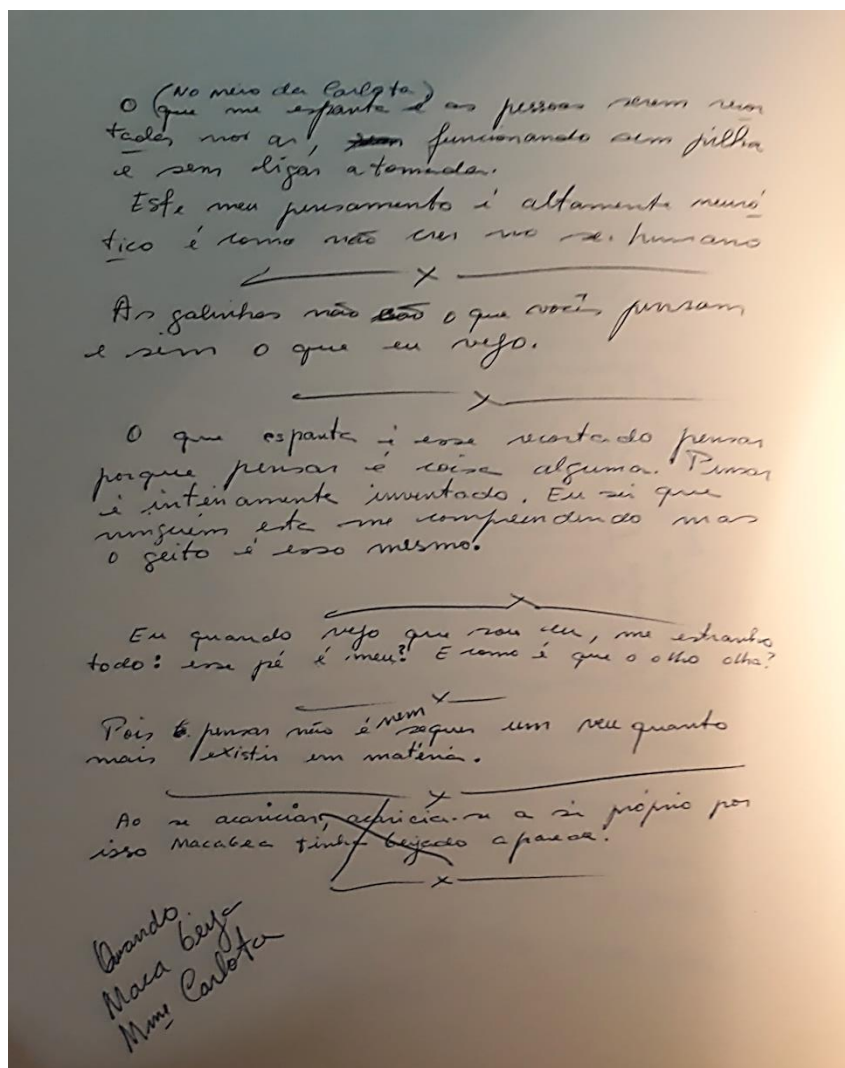 (No meio da Carlota)
O que me espanta é as pessoas serem recor
tadas no ar, funcionando sem pilha
e sem ligar a tomada.
Este meu pensamento é altamente neuró
tico é como não crer no ser humano
x
As galinhas não são o que vocês pensam
e sim o que eu vejo.
x
O que espanta é esse recortado pensar
porque pensar é coisa alguma. Pensar
é inteiramente inventado. Eu sei que
ninguem está me compreendendo mas
o geito é esse mesmo.
x
Eu quando vejo que sou eu, me estranho
todo: esse pé é meu? E como é que o olho olha?
x
Pois pensar não é nem sequer um véu quanto
mais existir em matéria.
x
Ao se acariciar, acaricia-se a si próprio por
isso Macabea tinha beijado a parede.
x
Quando
Maca beija
Mme Carlota